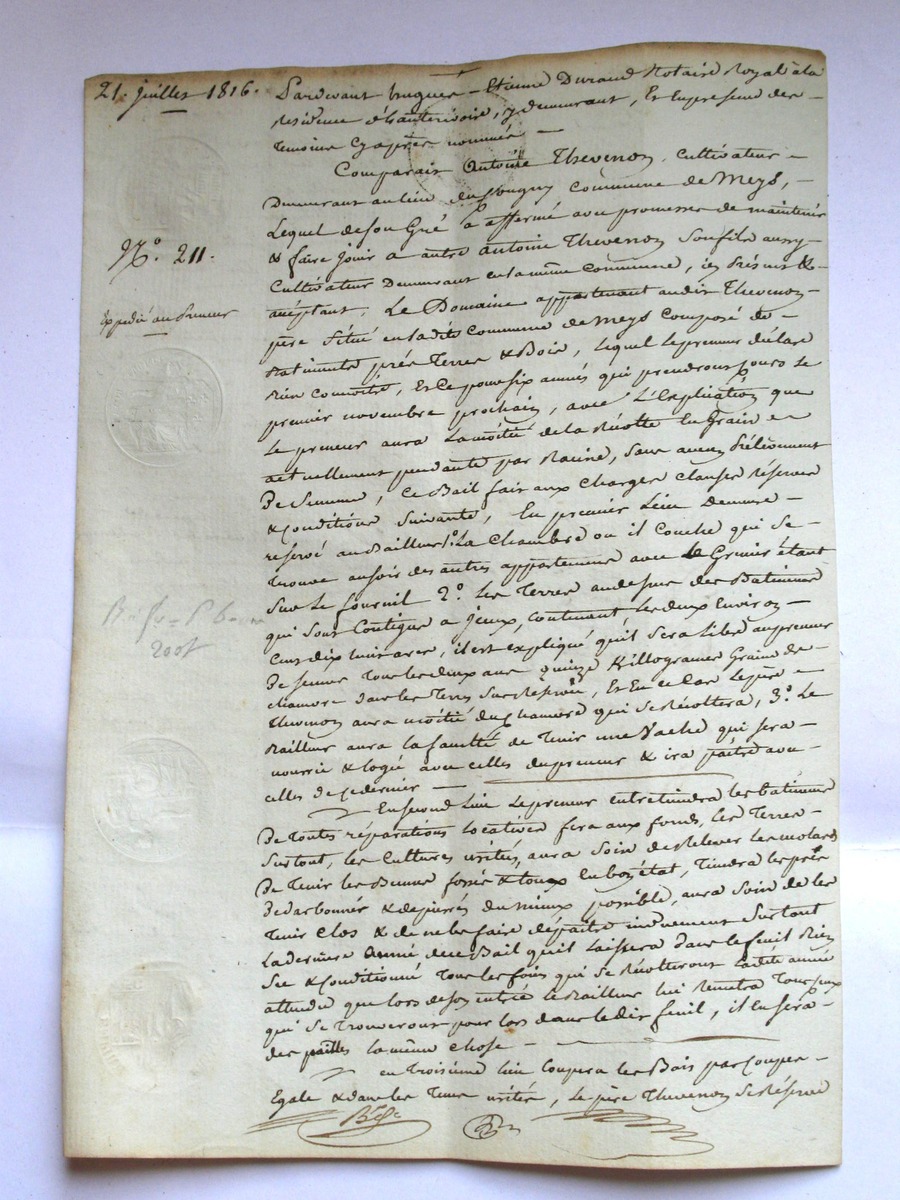 21. juillet 1816.
Pardevant hugues - Etienne Durand Notaire Royal à la
résidence d'hauterivoire, y demeurant, et en présence des
témoins cy après nommés —
Comparait Antoine Thevenon, cultivateur
Demeurant au lieu du commune de Meys,
Lequel de son Gré a affermé avec promesse de maintenir
& faire jouir a autre antoine Thevenon son fils aussy
N.° 211.
Cultivateur Demeurant en la même commune, icy présent &
acceptant, Le Domaine appartenant audit Thevenon
Expedié au Preneur
père situé en ladite commune de Meys composé de
Batiments prés Terres & Bois, lequel le preneur déclare
bien connoitre, et ce pour six années qui prendront cours le
premier novembre prochain, avec l'Explication que
Le preneur aura la moitié de la Récolte en Grain
actuellement pendante par Racine, sans aucun prélèvement
De Semence, ce Bail fait aux charges clauses réserves
& conditions suivantes, En premier Lieu demeure
reservé au Bailleur 1.° La chambre ou il couche qui se
trouve au soir des autres appartements avec le Grenier étant
sur le fournil 2.° Les Terres audessus des Batiments
qui sont contigus a iceux, contenant les deux environ
cent dix huit ares, il est expliqué qu'il sera libre au preneur
De semer tous les deux ans quinze killogrames Graine de
chanvre dans les Terres sus Reservées, et en ce cas le père
Thevenon aura moitié du chanvre qui se récoltera, 3.° Le
Bailleur aura la faculté de Tenir une Vache qui sera
nourrie & logée avec celles du preneur & ira paitre avec
celles de ce dernier —
En second Lieu Le preneur entretiendra les batiments
De toutes réparations locatives fera aux fonds, les Terres
surtout, les cultures usitées, aura soin de relever les
De tenir les fossés & en bon état, tiendra les prés
& depierrés du mieux possible, aura soin de les
tenir clos & de ne les faire dépaitre surtout
La dernière année de ce Bail qu'il laissera dans le feuil Bien
sec & conditionné tous les foins qui se récolteront ladite année
attendu que lors de son entrée le Bailleur lui remettra tous ceux
qui se trouveront pour lors dans ledit feuil, il en sera
des pailles la même chose —
en Troisième lieu coupera les Bois par coupes
Egale & dans les Tems usités, Le père Thevenon se réserve